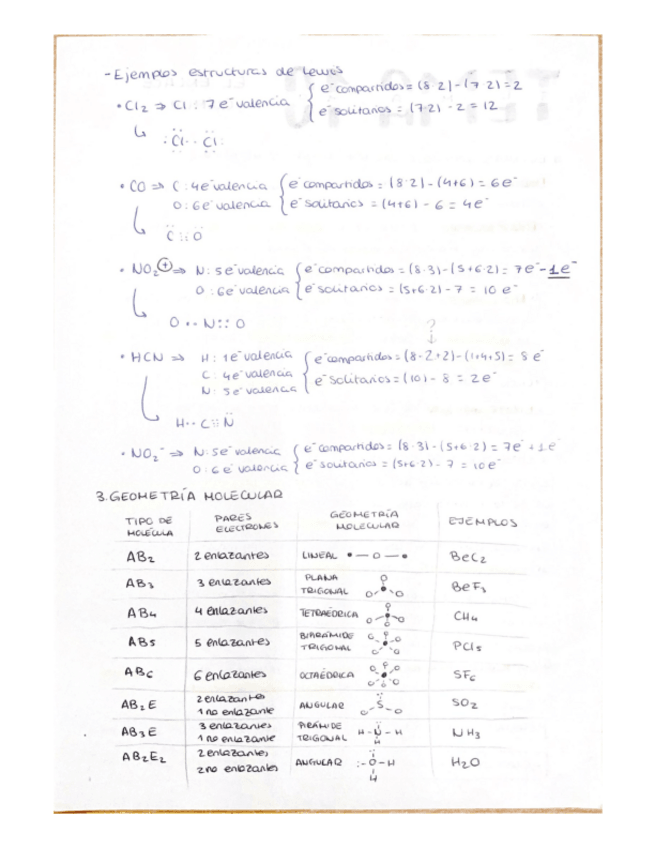 - Ejemplos estructuras de Lewis
• Cl2 ⇒ Cl : 7 e⁻ valencia { e⁻ compartidos = (8·2) - (7·2) = 2
e⁻ solitarios = (7·2) - 2 = 12
:Cl·· Cl:
• CO ⇒ C : 4e⁻ valencia { e⁻ compartidos = (8·2) - (4+6) = 6e⁻
O : 6e⁻ valencia { e⁻ solitarios = (4+6) - 6 = 4e⁻
C ::: O
• NO2⊕ ⇒ N : 5e⁻ valencia { e⁻ compartidos = (8·3) - (5+6·2) = 7e⁻ - 1e⁻
O : 6e⁻ valencia { e⁻ solitarios = (5+6·2) - 7 = 10 e⁻
O ·· N :: O
?
• HCN ⇒ H : 1e⁻ valencia { e⁻ compartidos = (8·2+2) - (1+4+5) = 8 e⁻
C : 4e⁻ valencia
N : 5e⁻ valencia { e⁻ solitarios = (10) - 8 = 2e⁻
H ·· C ::: N
• NO2⁻ ⇒ N: 5e⁻ valencia { e⁻ compartidos = (8·3) - (5+6·2) = 7e⁻ + 1e⁻
O : 6e⁻ valencia { e⁻ solitarios = (5+6·2) - 7 = 10e⁻
3. GEOMETRÍA MOLECULAR
TIPO DE MOLÉCULA PARES ELECTRONES GEOMETRÍA MOLECULAR EJEMPLOS
AB2 2 enlazantes LINEAL BeC2
AB3 3 enlazantes PLANA TRIGONAL BeF3
AB4 4 enlazantes TETRAÉDRICA CH4
AB5 5 enlazantes BIPIRÁMIDE TRIGONAL PCl5
AB6 6 enlazantes OCTAÉDRICA SF6
AB2E 2 enlazantes 1 no enlazante ANGULAR O S O SO2
AB3E 3 enlazantes 1 no enlazante PIRÁMIDE TRIGONAL H-N-H H NH3
AB2E2 2 enlazantes 2 no enlazantes ANGULAR :-O-H H H2O